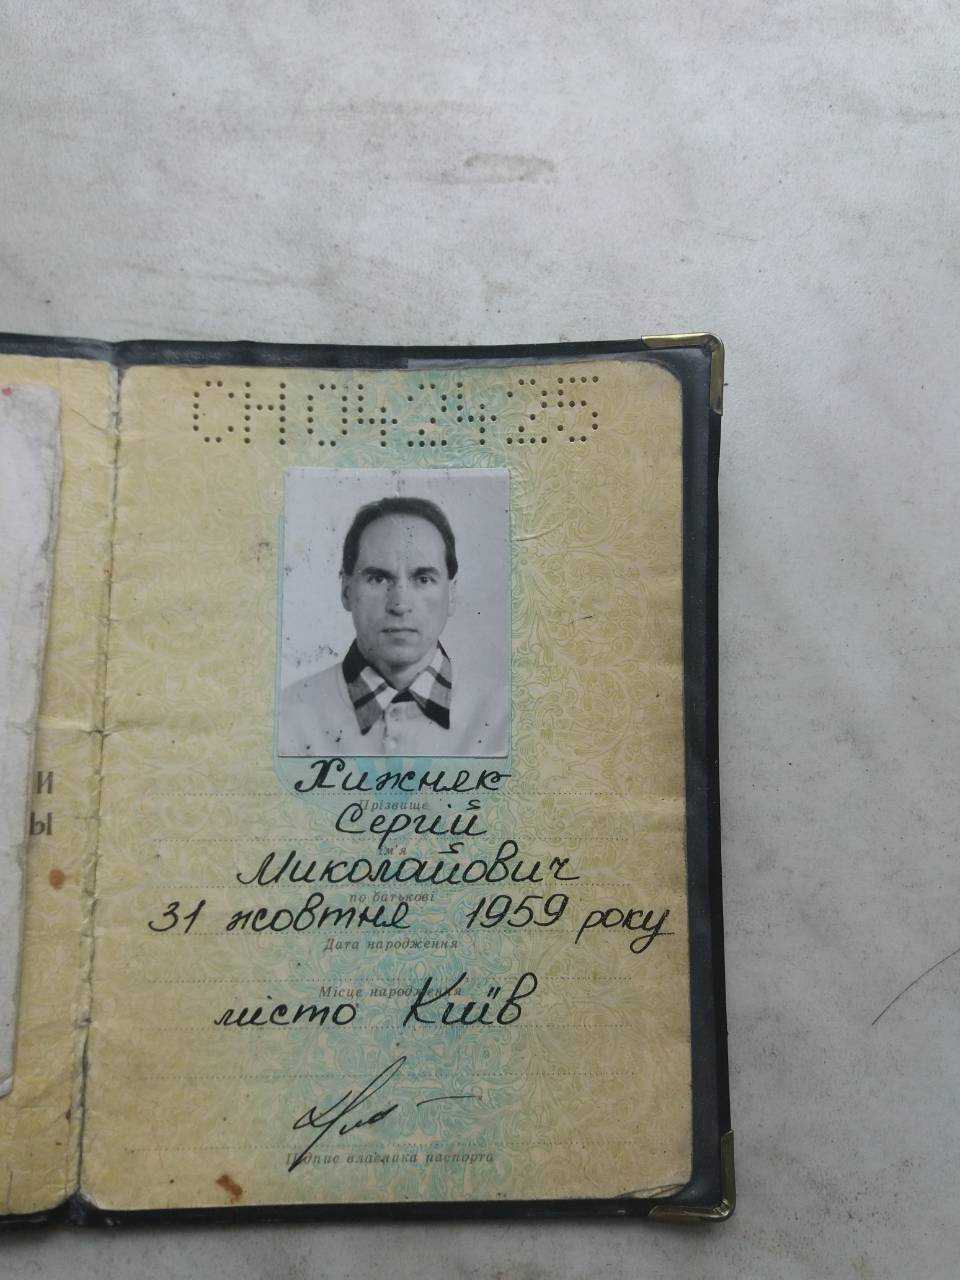 СН042425
Хижняк
Прізвище
Сергій
ім'я
Миколайович
по батькові
31 жовтня 1959 року
Дата народження
Місце народження
місто Київ
Підпис власника паспорта
И
Ы